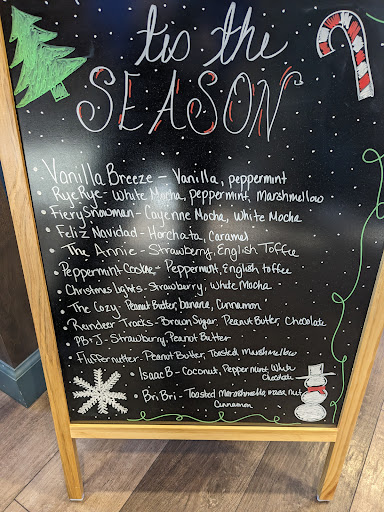 tis the
SEASON
• Vanilla Breeze - Vanilla, peppermint
• Rye Rye - White Mocha, peppermint, Marshmellow
• Fiery Snowman - Cayenne Mocha, White Mocha
• Feliz Navidad - Horchata, Caramel
• The Annie - Strawberry, English Toffee
• Peppermint Cookie - Peppermint, English toffee
• Christmas Lights - Strawberry, White Mocha
• The Cozy - Peanut Butter, banana, Cinnamon
• Reindeer Tracks - Brown Sugar, Peanut Butter, Chocolate
• PB+J - Strawberry, Peanut Butter
• Fluffernutter - Peanut Butter, Toasted Marshmellow
• Isaac B - Coconut, Peppermint, White
Chocolate
• Bri Bri - Toasted Marshmello, nut
Cinnamon